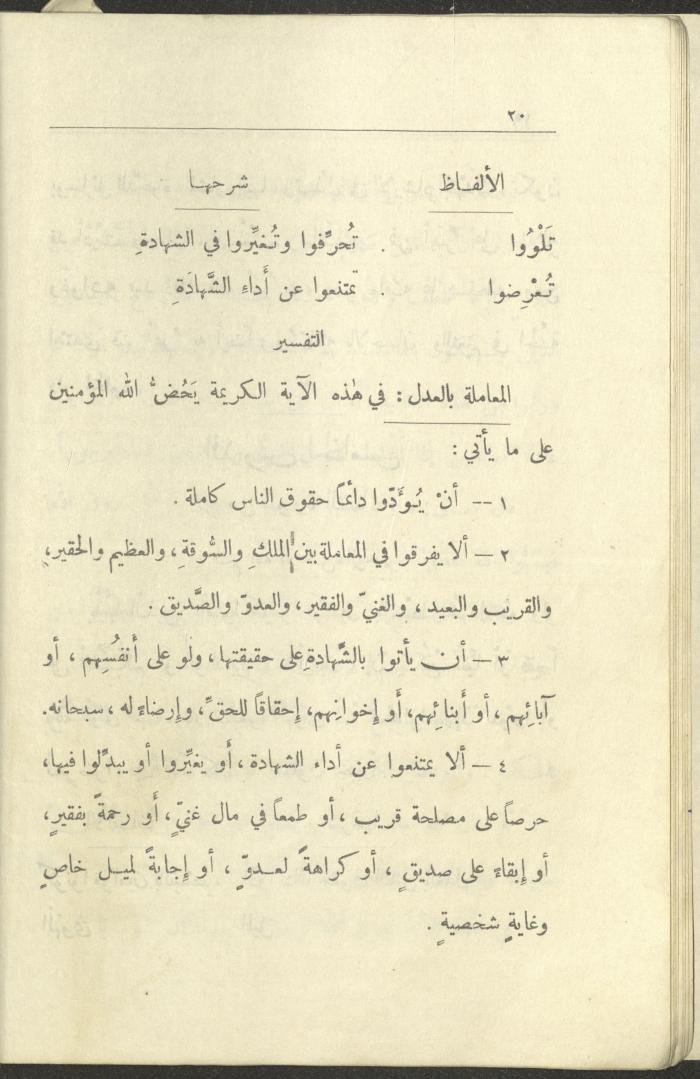 ٢٠
الألفاظ شرحها
تَلْوُوا . تُحرِّفوا وتُغيِّروا في الشهادةِ
تُعْرِضوا . تمتنعوا عن أَداءِ الشَّهادَةِ
التفسير
المعاملة بالعدل : في هٰذه الآية الكريمة يَحُضُّ الله المؤمنين
على ما يأتي :
١ -- أنْ يُؤَدّوا دائماً حقوق الناس كاملة .
٢ — ألا يفرقوا في المعاملة بين الملكِ والسُّوقةِ ، والعظيم والحقير ،
والقريب والبعيد ، والغنيّ والفقير ، والعدوّ والصَّديق .
٣ — أن يأتوا بالشَّهادةِ على حقيقتها ، ولو على أَنفسُِهم ، أو
آبائِهم ، أو أَبنائِهم، أَو إِخوانِهم، إِحقاقاً للحقِّ ، وإِرضاءً له ، سبحانه.
٤ — ألا يمتنعوا عن أداء الشهادة ، أَو يغيِّروا أو يبدِّلوا فيها ،
حرصاً على مصلحة قريب ، أو طمعاً في مال غنيّ ، أَو رحمةً بفقيرٍ ،
أو إِبقاءً على صديقٍ ، أو كراهةً لعدوّ ، أو إِجابةً لميل خاصٍ
وغايةٍ شخصيةٍ .